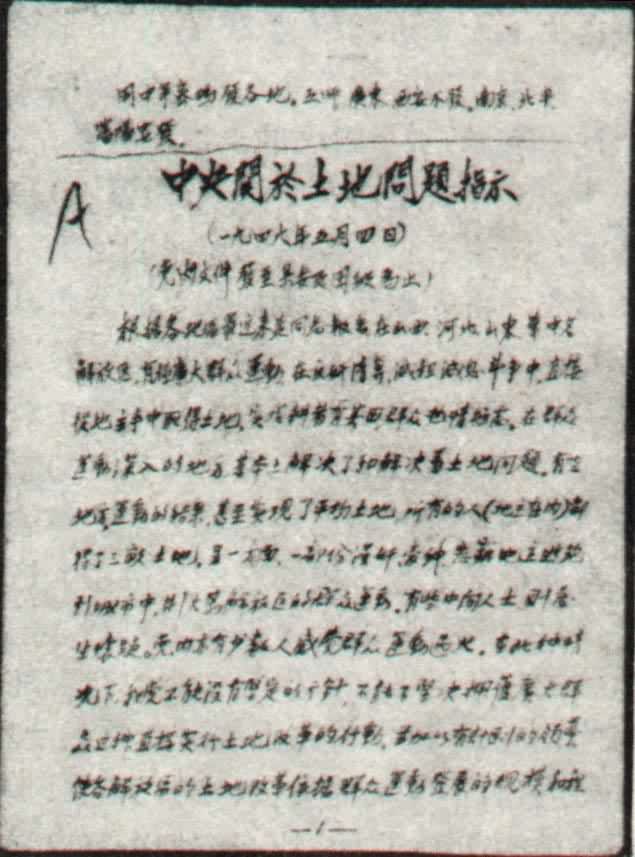 各地。 广东 西安不发。南京、北平
A
中央關於土地問題指示
(一九四六年五月四日)
(党内文件 發至县委及团级为止)
根据各地 最近来延同志报告在山西 河北 山东 華中各
解放区, 有極廣大群众運動 在反奸清算, 减租减息斗争中, 直接
從地主手中取得土地, 实行耕者有其田 群众热情极高。在群众
運動深入的地方 基本上解决了和解决着土地问题, 有些
地方運動的结果, 甚至实现了平均土地, 所有的人(地主在内)都
得了三畝土地。另一方面, 一部份汉奸, 豪绅, 恶霸 地主 逃跑
到城市中, 大骂解放区的群众運動, 有些中间人士 则 怀
生 疑。党内亦有少数人感觉群众運動过火。在此种情
况下, 我党不能没有坚定的方针, 不能不坚决拥護廣大群
众这种直接实行土地改革的行動, 並加以有计划的领导
使各解放区的土地改革依据群众運動發展的规模和程
—1—